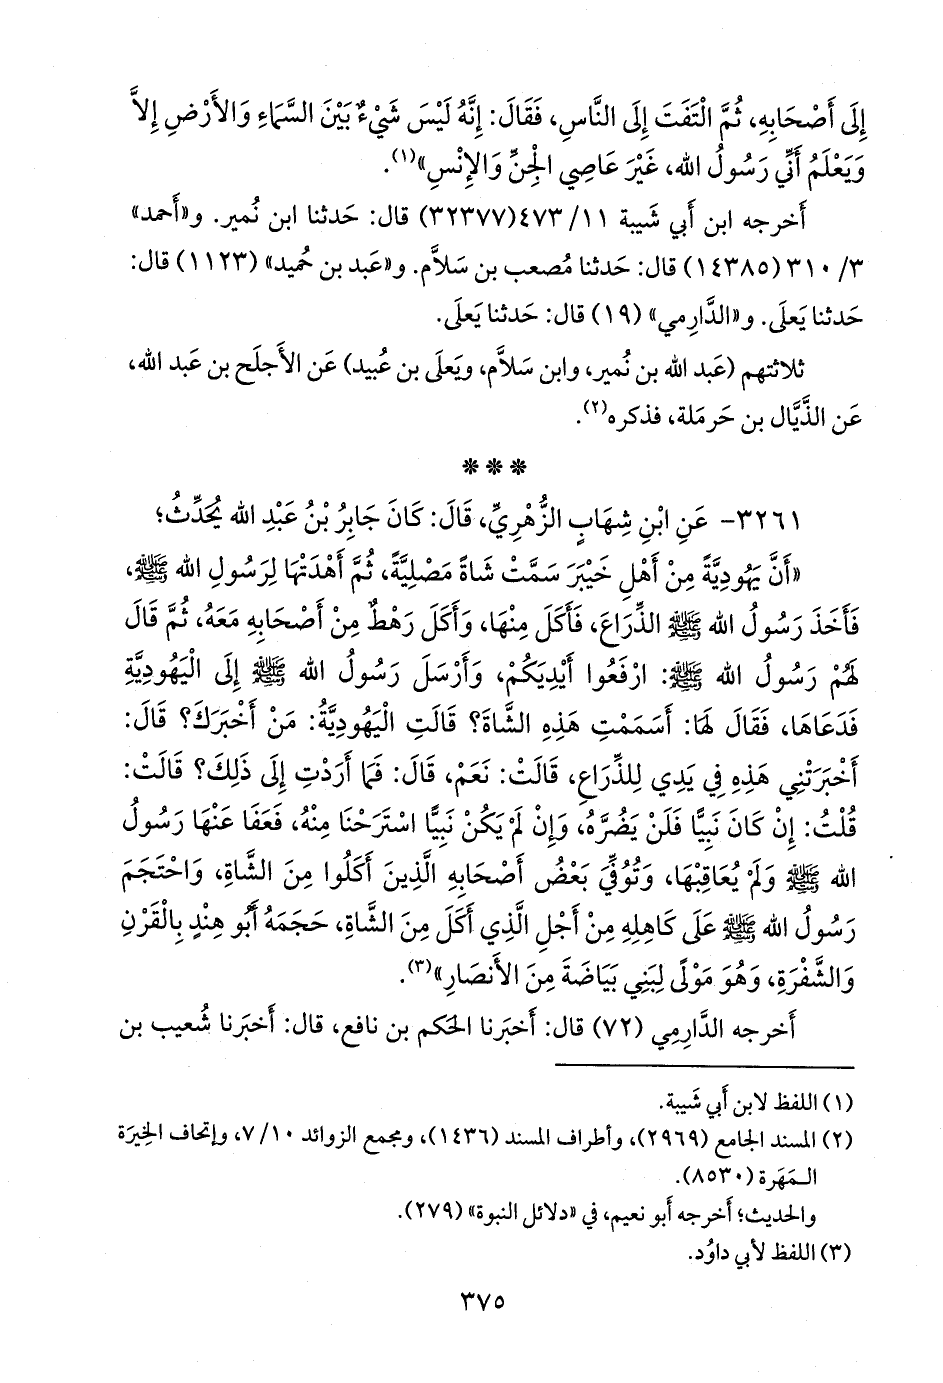 إِلَى أَصْحَابِهِ، ثُمَّ الْتَفَتَ إِلَى النَّاسِ، فَقَالَ: إِنَّهُ لَيْسَ شَيْءٌ بَيْنَ السَّمَاءِ وَالأَرْضِ إِلاَّ
وَيَعْلَمُ أَنِّي رَسُولُ الله، غَيْرَ عَاصِي الْجِنِّ وَالإِنْسِ»(١).
أَخرجه ابن أَبي شَيبة ١١/ ٤٧٣(٣٢٣٧٧) قال: حَدثنا ابن نُمير. و«أَحمد»
٣/ ٣١٠ (١٤٣٨٥) قال: حَدثنا مُصعب بن سَلاَّم. و«عَبد بن حُميد» (١١٢٣) قال:
حَدثنا يَعلَى. و«الدَّارِمي» (١٩) قال: حَدثنا يَعلَى.
ثلاثتهم (عَبد الله بن نُمير، وابن سَلاَّم، ويَعلَى بن عُبيد) عَن الأَجلَح بن عَبد الله،
عَن الذَّيَّال بن حَرمَلة، فذكره(٢).
* * *
٣٢٦١- عَنِ ابْنِ شِهَابٍ الزُّهْرِيِّ، قَالَ: كَانَ جَابِرُ بْنُ عَبْدِ الله يُحَدِّثُ؛
«أَنَّ يَهُودِيَّةً مِنْ أَهْلِ خَيْبَرَ سَمَّتْ شَاةً مَصْلِيَّةً، ثُمَّ أَهْدَتْهَا لِرَسُولِ الله ﷺ،
فَأَخَذَ رَسُولُ الله ﷺ الذِّرَاعَ، فَأَكَلَ مِنْهَا، وَأَكَلَ رَهْطٌ مِنْ أَصْحَابِهِ مَعَهُ، ثُمَّ قَالَ
لَهُمْ رَسُولُ الله ﷺ: ارْفَعُوا أَيْدِيَكُمْ، وَأَرْسَلَ رَسُولُ الله ﷺ إِلَى الْيَهُودِيَّةِ
فَدَعَاهَا، فَقَالَ لَهَا: أَسَمَمْتِ هَذِهِ الشَّاةَ؟ قَالَتِ الْيَهُودِيَّةُ: مَنْ أَخْبَرَكَ؟ قَالَ:
أَخْبَرَتْنِي هَذِهِ فِي يَدِي لِلذِّرَاعِ، قَالَتْ: نَعَمْ، قَالَ: فَمَا أَرَدْتِ إِلَى ذَلِكَ؟ قَالَتْ:
قُلْتُ: إِنْ كَانَ نَبِيًّا فَلَنْ يَضُرَّهُ، وَإِنْ لَمْ يَكُنْ نَبِيًّا اسْتَرَحْنَا مِنْهُ، فَعَفَا عَنْهَا رَسُولُ
الله ﷺ وَلَمْ يُعَاقِبْهَا، وَتُوُفِّيَ بَعْضُ أَصْحَابِهِ الَّذِينَ أَكَلُوا مِنَ الشَّاةِ، وَاحْتَجَمَ
رَسُولُ الله ﷺ عَلَى كَاهِلِهِ مِنْ أَجْلِ الَّذِي أَكَلَ مِنَ الشَّاةِ، حَجَمَهُ أَبُو هِنْدٍ بِالْقَرْنِ
وَالشَّفْرَةِ، وَهُوَ مَوْلًى لِبَنِي بَيَاضَةَ مِنَ الأَنصَارِ»(٣).
أَخرجه الدَّارِمِي (٧٢) قال: أَخبَرنا الحَكم بن نافع، قال: أَخبَرنا شُعيب بن
(١) اللفظ لابن أَبي شَيبة.
(٢) المسند الجامع (٢٩٦٩)، وأطراف المسند (١٤٣٦)، ومجمع الزوائد ١٠/ ٧، وإتحاف الخِيرَة
المَهَرة (٨٥٣٠).
والحديث؛ أَخرجه أَبو نعيم، في «دلائل النبوة» (٢٧٩).
(٣) اللفظ لأَبي داوُد.
٣٧٥